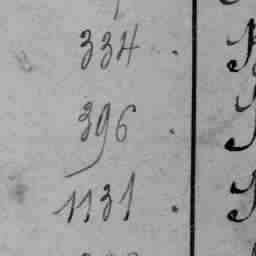 334 .
396 .
1131 .